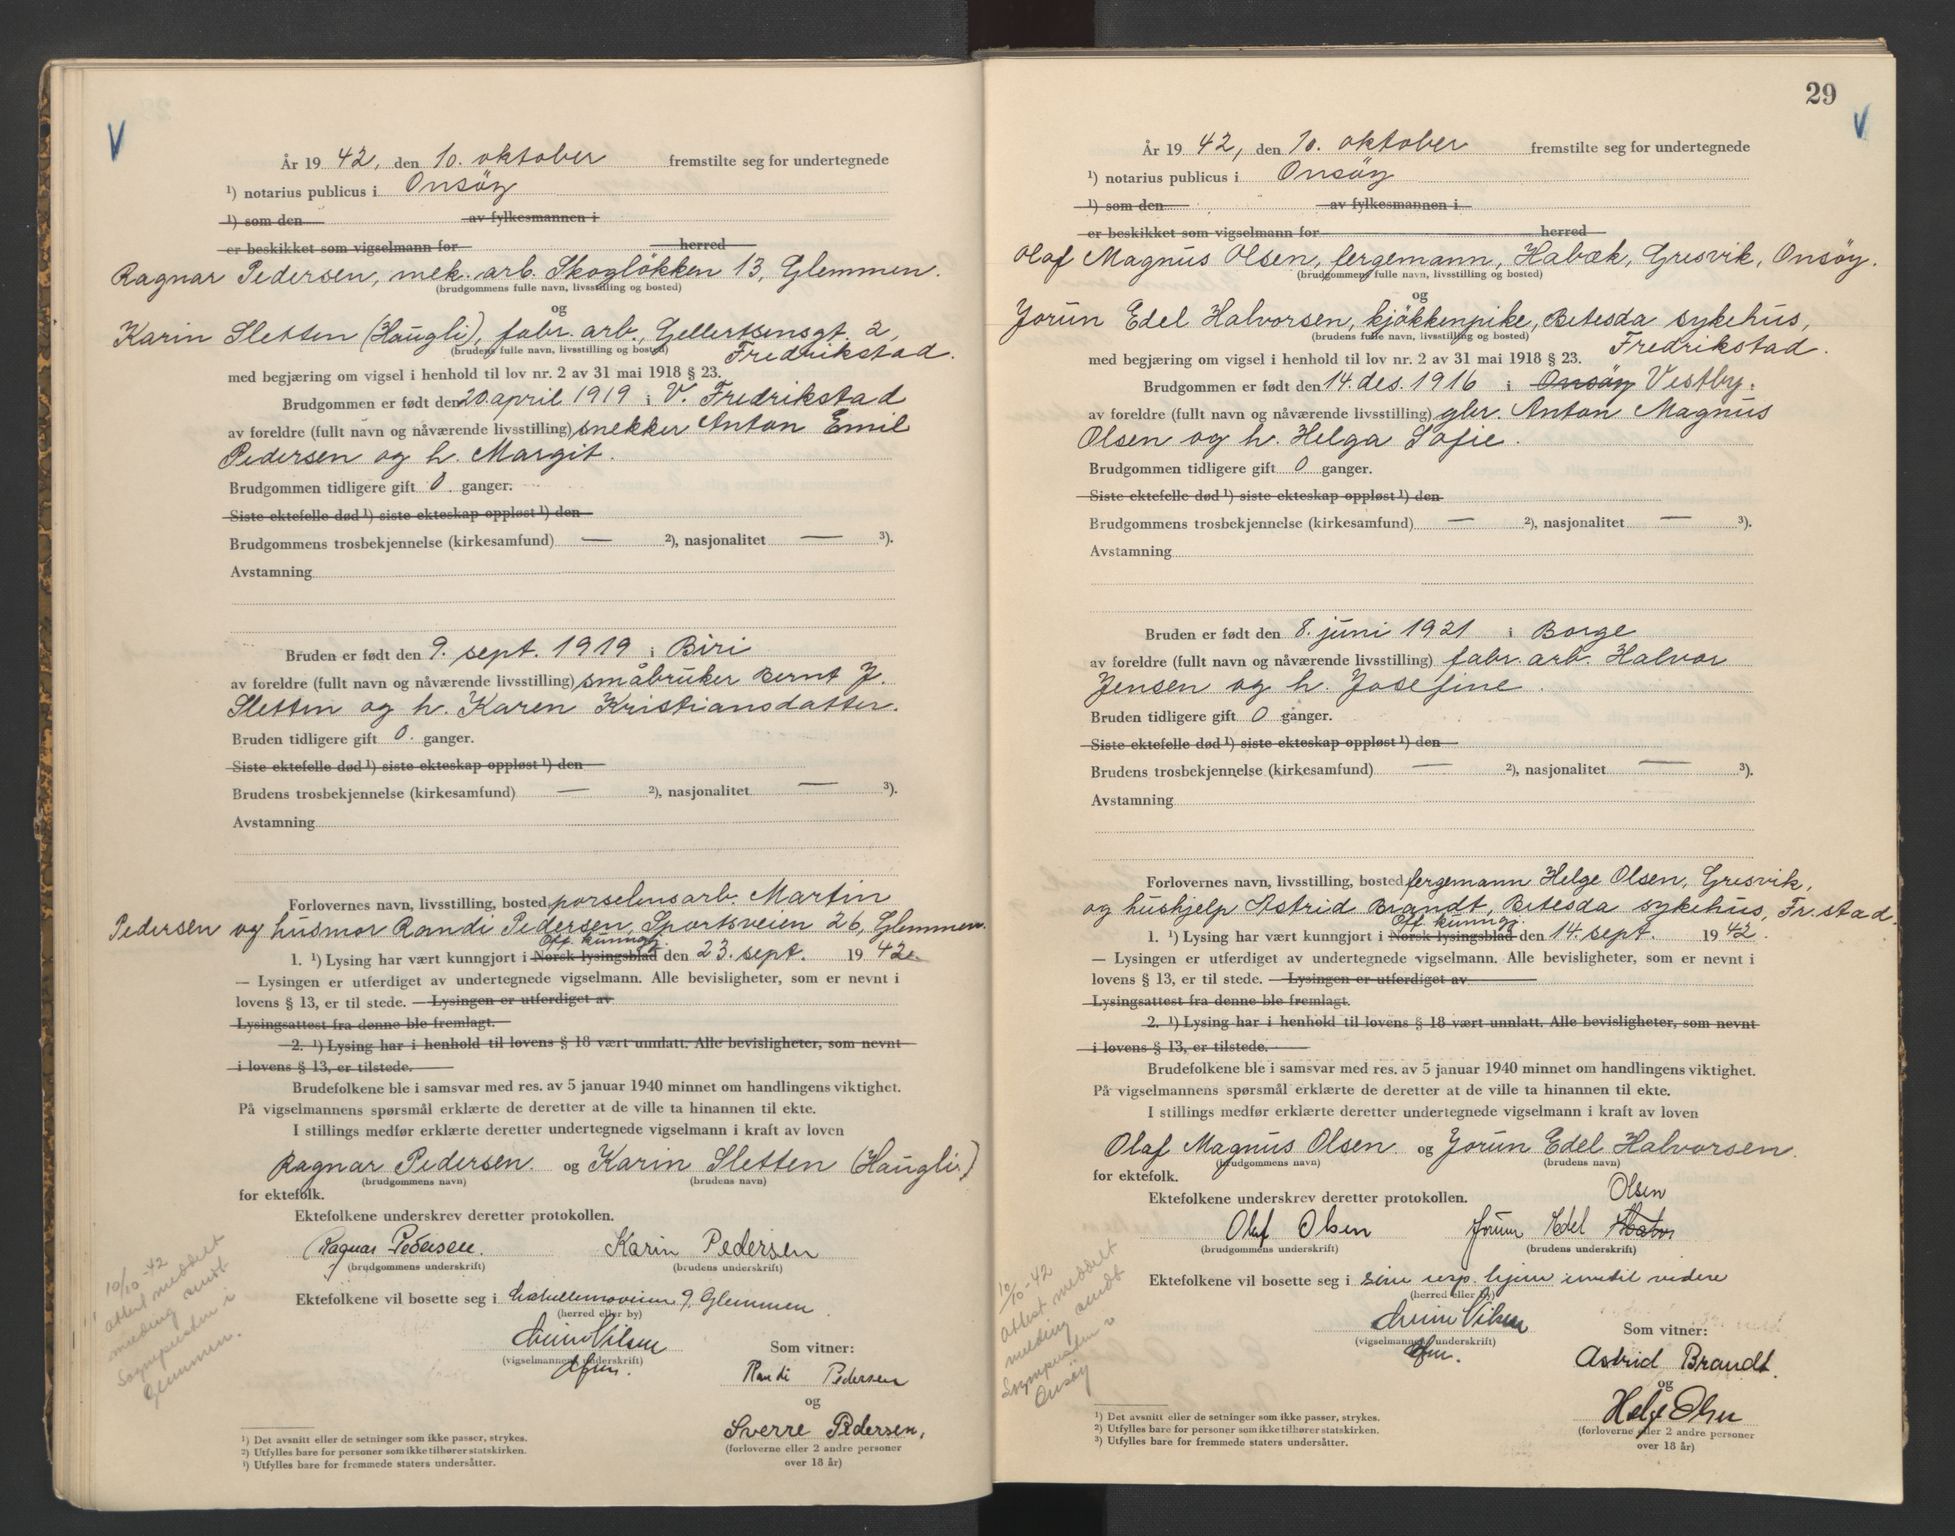 V
År 19 42, den 10. oktober fremstilte seg for undertegnede
¹) notarius publicus i Onsöy
¹) som den av fylkesmannen i
er beskikket som vigselmann for herred
Ragnar Pedersen, mek. arb. Skoglökken 13, Glemmen.
(brudgommens fulle navn, livsstilling og bosted)
og
Karin Sletten (Haugli), fabr. arb., Gellertsensgt. 2,
(brudens fulle navn, livsstilling og bosted)
Fredrikstad.
med begjæring om vigsel i henhold til lov nr. 2 av 31 mai 1918 § 23.
Brudgommen er født den 20 april 1919 i V. Fredrikstad
av foreldre (fullt navn og nåværende livsstilling) snekker Anton Emil
Pedersen og h. Margit.
Brudgommen tidligere gift 0. ganger.
Siste ektefelle død ¹) siste ekteskap oppløst ¹) den
Brudgommens trosbekjennelse (kirkesamfund) — ²), nasjonalitet — ³).
Avstamning
Bruden er født den 9. sept. 1919 i Biri
av foreldre (fullt navn og nåværende livsstilling) småbruker Bernt J.
Sletten og h. Karen Kristiansdatter.
Bruden tidligere gift 0. ganger.
Siste ektefelle død ¹) siste ekteskap oppløst ¹) den
Brudens trosbekjennelse (kirkesamfund) — ²), nasjonalitet — ³).
Avstamning
Forlovernes navn, livsstilling, bosted porselensarb. Martin
Pedersen og husmor Randi Pedersen, Sportsveien 26, Glemmen.
Off. kunngj.
1. ¹) Lysing har vært kunngjort i Norsk lysingsblad den 23. sept. 19 42.
— Lysingen er utferdiget av undertegnede vigselmann. Alle bevisligheter, som er nevnt i
lovens § 13, er til stede. — Lysingen er utferdiget av
Lysingsattest fra denne ble fremlagt.
2. ¹) Lysing har i henhold til lovens § 18 vært unnlatt. Alle bevisligheter, som nevnt
i lovens § 13, er tilstede.
Brudefolkene ble i samsvar med res. av 5 januar 1940 minnet om handlingens viktighet.
På vigselmannens spørsmål erklærte de deretter at de ville ta hinannen til ekte.
I stillings medfør erklærte deretter undertegnede vigselmann i kraft av loven
Ragnar Pedersen og Karin Sletten (Haugli.)
(brudgommens navn) (brudens navn)
for ektefolk.
Ektefolkene underskrev deretter protokollen.
Ragnar Pedersen. Karin Pedersen
(brudgommens underskrift) (brudens underskrift)
Ektefolkene vil bosette seg i 9, Glemmen
(herred eller by)
(vigselmannens underskrift)
Som vitner:
Randi Pedersen
og
Sverre Pedersen,
(forloverne eller 2 andre personer
over 18 år)
10/10-42
attest meddelt
melding sendt
Sognepresten i
Glemmen.
¹) Det avsnitt eller de setninger som ikke passer, strykes.
²) Utfylles bare for personer som ikke tilhører statskirken.
³) Utfylles bare for fremmede staters undersåtter.
29
V
År 19 42, den 10. oktober fremstilte seg for undertegnede
¹) notarius publicus i Onsöy
¹) som den av fylkesmannen i
er beskikket som vigselmann for herred
Olaf Magnus Olsen, fergemann, Habæk, Gresvik, Onsöy.
(brudgommens fulle navn, livsstilling og bosted)
og
Jorun Edel Halvorsen, kjökkenpike, Betesda sykehus,
(brudens fulle navn, livsstilling og bosted)
Fredrikstad.
med begjæring om vigsel i henhold til lov nr. 2 av 31 mai 1918 § 23.
Brudgommen er født den 14. des. 1916 i Onsöy Vestby.
av foreldre (fullt navn og nåværende livsstilling) gbr. Anton Magnus
Olsen og h. Helga Sofie.
Brudgommen tidligere gift 0 ganger.
Siste ektefelle død ¹) siste ekteskap oppløst ¹) den
Brudgommens trosbekjennelse (kirkesamfund) — ²), nasjonalitet — ³).
Avstamning
Bruden er født den 8. juni 1921 i Borge
av foreldre (fullt navn og nåværende livsstilling) fabr. arb. Halvor
Jensen og h. Josefine.
Bruden tidligere gift 0 ganger.
Siste ektefelle død ¹) siste ekteskap oppløst ¹) den
Brudens trosbekjennelse (kirkesamfund) — ²), nasjonalitet — ³).
Avstamning
Forlovernes navn, livsstilling, bosted fergemann Helge Olsen, Gresvik,
og hushjelp Astrid Brandt, Betesda sykehus, Fr.stad.
Off. kunngj.
1. ¹) Lysing har vært kunngjort i Norsk lysingsblad den 14. sept. 19 42.
— Lysingen er utferdiget av undertegnede vigselmann. Alle bevisligheter, som er nevnt i
lovens § 13, er til stede. — Lysingen er utferdiget av
Lysingsattest fra denne ble fremlagt.
2. ¹) Lysing har i henhold til lovens § 18 vært unnlatt. Alle bevisligheter, som nevnt
i lovens § 13, er tilstede.
Brudefolkene ble i samsvar med res. av 5 januar 1940 minnet om handlingens viktighet.
På vigselmannens spørsmål erklærte de deretter at de ville ta hinannen til ekte.
I stillings medfør erklærte deretter undertegnede vigselmann i kraft av loven
Olaf Magnus Olsen og Jorun Edel Halvorsen.
(brudgommens navn) (brudens navn)
for ektefolk.
Ektefolkene underskrev deretter protokollen.
Olsen
Olaf Olsen Jorun Edel Halvor
(brudgommens underskrift) (brudens underskrift)
Ektefolkene vil bosette seg i sine resp. hjem inntil videre
(herred eller by)
(vigselmannens underskrift)
Som vitner:
Astrid Brandt.
og
Helge Olsen
(forloverne eller 2 andre personer
over 18 år)
10/10-42
attest meddelt
melding sendt
Sognepresten i
Onsöy
¹) Det avsnitt eller de setninger som ikke passer, strykes.
²) Utfylles bare for personer som ikke tilhører statskirken.
³) Utfylles bare for fremmede staters undersåtter.